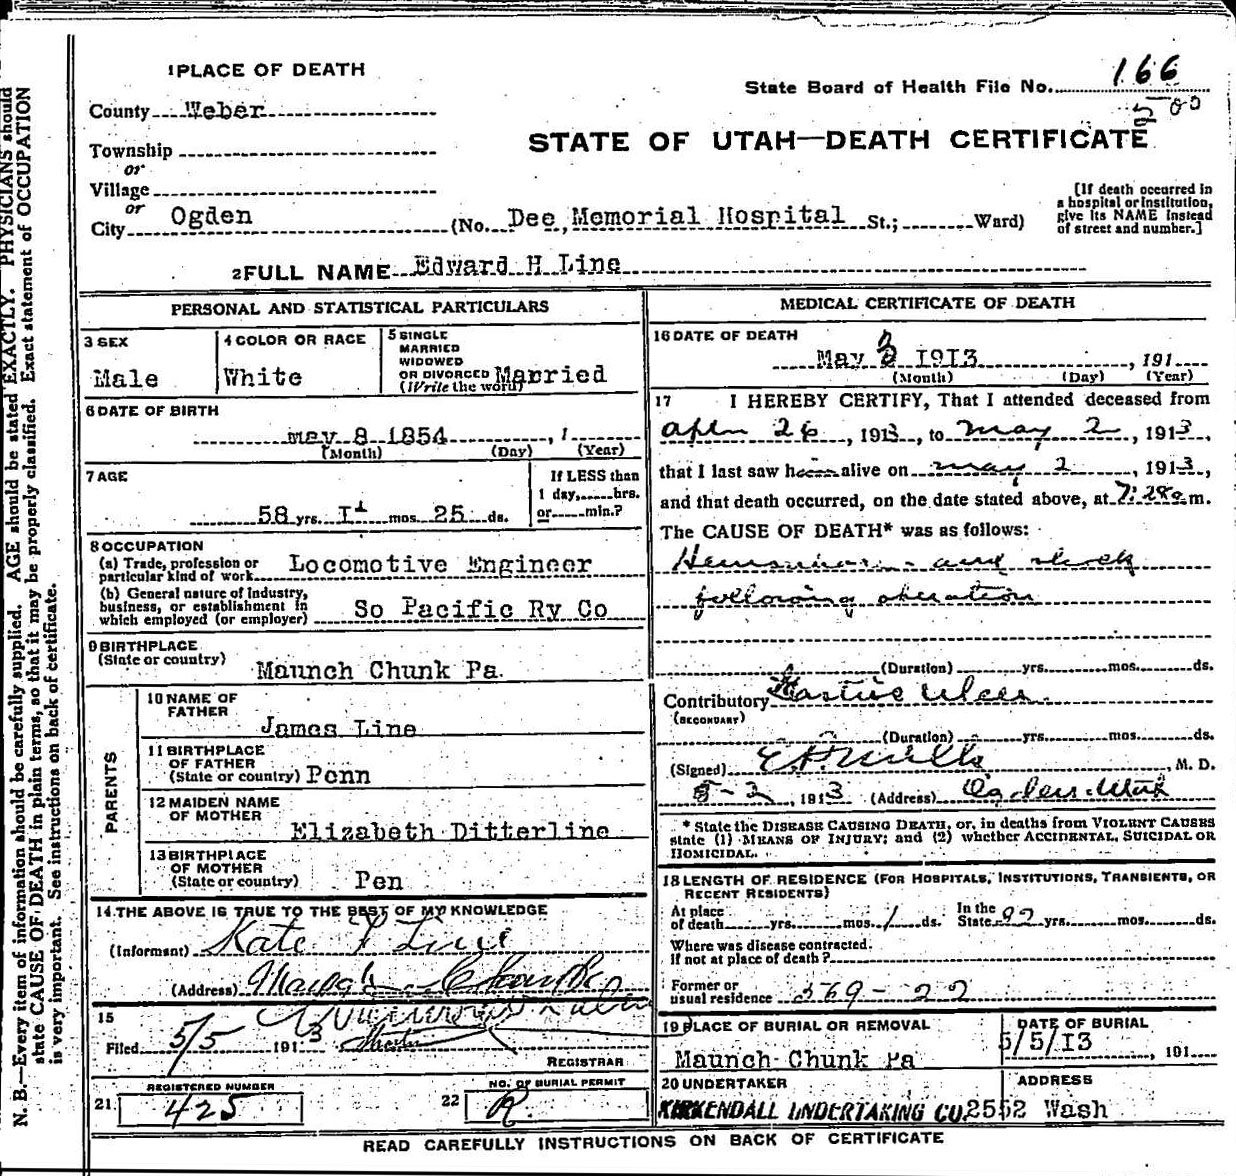 1 PLACE OF DEATH
State Board of Health File No. 166
County Weber
500
STATE OF UTAH—DEATH CERTIFICATE
Township
or
Village
or
City Ogden (No. Dee Memorial Hospital St.; Ward)
[If death occurred in
a hospital or institution,
give its NAME instead
of street and number.]
2 FULL NAME Edward H Line
PERSONAL AND STATISTICAL PARTICULARS
3 SEX
Male
4 COLOR OR RACE
White
5 SINGLE
MARRIED
WIDOWED
OR DIVORCED Married
(Write the word)
6 DATE OF BIRTH
may 8 1854, 1
(Month) (Day) (Year)
7 AGE
58 yrs. 11 mos. 25 ds.
If LESS than
1 day, hrs.
or min.?
8 OCCUPATION
(a) Trade, profession or
particular kind of work Locomotive Engineer
(b) General nature of industry,
business, or establishment in
which employed (or employer) So Pacific Ry Co
9 BIRTHPLACE
(State or country)
Maunch Chunk Pa.
PARENTS
10 NAME OF
FATHER
James Line
11 BIRTHPLACE
OF FATHER
(State or country) Penn
12 MAIDEN NAME
OF MOTHER
Elizabeth Ditterline
13 BIRTHPLACE
OF MOTHER
(State or country) Pen
14 THE ABOVE IS TRUE TO THE BEST OF MY KNOWLEDGE
(Informant) Kate Line
(Address) Mauch Chunk
15
Filed 5/5 1913
REGISTRAR
REGISTERED NUMBER
21 425
NO. OF BURIAL PERMIT
22 R
MEDICAL CERTIFICATE OF DEATH
16 DATE OF DEATH
May 3 1913, 191
(Month) (Day) (Year)
17 I HEREBY CERTIFY, That I attended deceased from
Apr 26, 1913, to May 2, 1913,
that I last saw him alive on May 2, 1913,
and that death occurred, on the date stated above, at 7:28 m.
The CAUSE OF DEATH* was as follows:
Hemorrhage and shock
following operation
(Duration) yrs. mos. ds.
Contributory Gastric Ulcer
(SECONDARY)
(Duration) yrs. mos. ds.
(Signed) M. D.
5-3, 1913 (Address) Ogden Utah
* State the DISEASE CAUSING DEATH, or, in deaths from VIOLENT CAUSES
state (1) MEANS OF INJURY; and (2) whether ACCIDENTAL, SUICIDAL OR
HOMICIDAL.
18 LENGTH OF RESIDENCE (FOR HOSPITALS, INSTITUTIONS, TRANSIENTS, OR
RECENT RESIDENTS)
At place
of death yrs. mos. 1 ds. In the
State yrs. mos. ds.
Where was disease contracted.
If not at place of death?
Former or
usual residence 369-22
19 PLACE OF BURIAL OR REMOVAL
Maunch Chunk Pa
DATE OF BURIAL
5/5/13, 191
20 UNDERTAKER
KIRKENDALL UNDERTAKING CO.
ADDRESS
2552 Wash
READ CAREFULLY INSTRUCTIONS ON BACK OF CERTIFICATE
N. B.—Every item of information should be carefully supplied. AGE should be stated EXACTLY. PHYSICIANS should
state CAUSE OF DEATH in plain terms, so that it may be properly classified. Exact statement of OCCUPATION
is very important. See instructions on back of certificate.